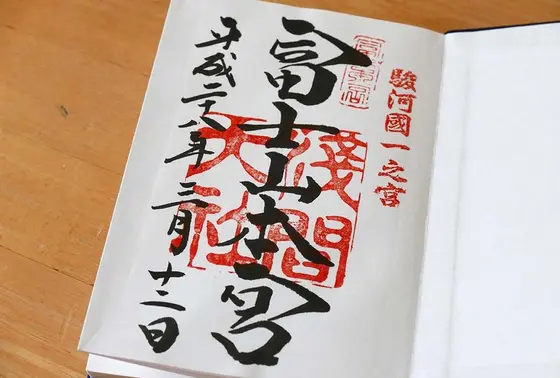 駿河國一之宮
冨士山本宮
淺間大社
平成二十八年三月十二日